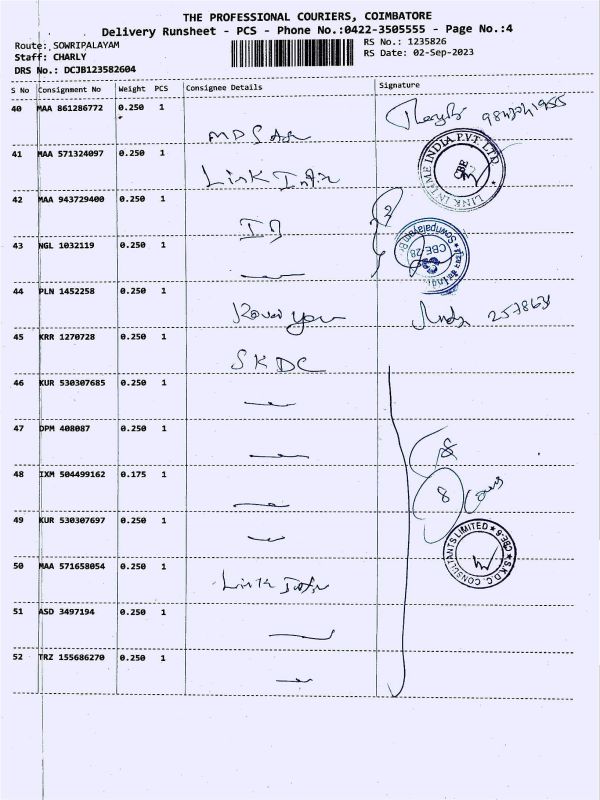 THE PROFESSIONAL COURIERS, COIMBATORE
Delivery Runsheet - PCS - Phone No.:0422-3505555 - Page No.:4
Route: SOWRIPALAYAM
RS No.: 1235826
Staff: CHARLY
RS Date: 02-Sep-2023
DRS No.: DCJB123582604
S No Consignment No Weight PCS Consignee Details Signature
40 MAA 861286772 0.250 1
41 MAA 571324097 0.250 1 Link
LINK INTIME INDIA PVT LTD CBE
42 MAA 943729400 0.250 1
43 NGL 1032119 0.250 1
Sowripalayam Br. CBE-28
44 PLN 1452258 0.250 1
45 KRR 1270728 0.250 1 SKDC
46 KUR 530307685 0.250 1
47 DPM 408087 0.250 1
48 IXM 504499162 0.175 1
8
49 KUR 530307697 0.250 1
S.K.D.C. CONSULTANTS LIMITED CBE-6
50 MAA 571658054 0.250 1 Link
51 ASD 3497194 0.250 1
52 TRZ 155686270 0.250 1